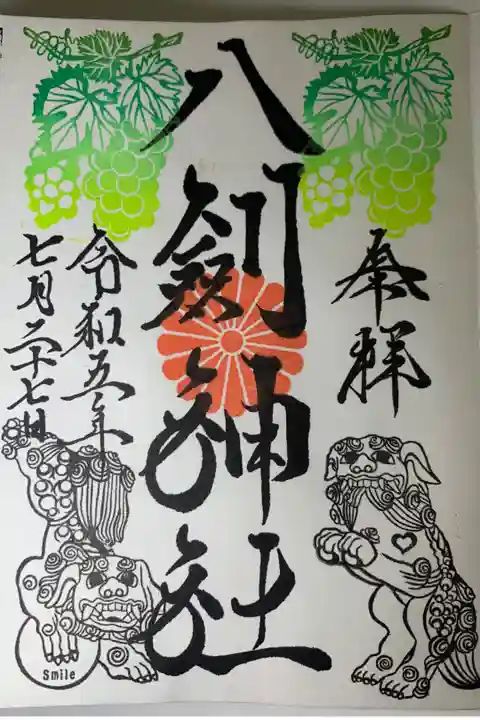 奉拝
八劔神社
令和五年
七月二十七日
Smile